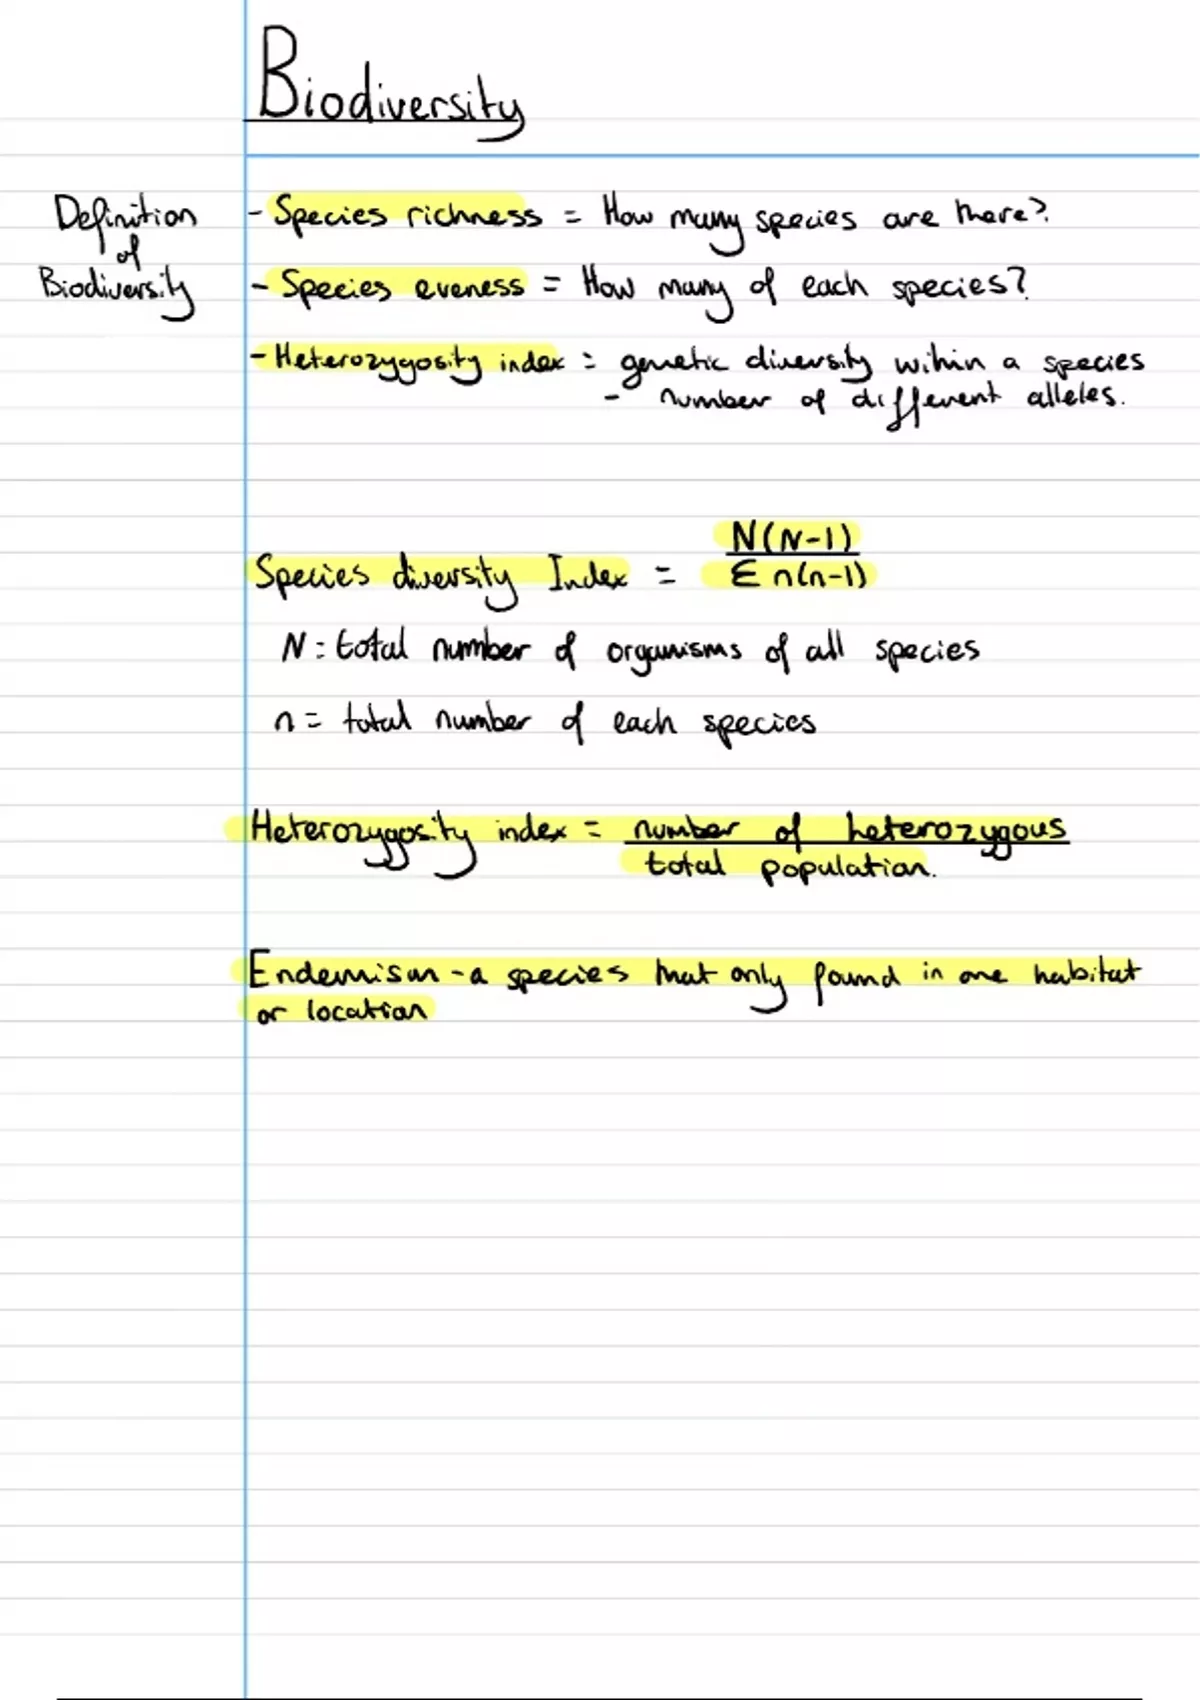 Biodiversity
Definition
of
Biodiversity
- Species richness = How many species are there?
- Species eveness = How many of each species?
- Heterozygosity index = genetic diversity within a species
- number of different alleles.
Species diversity Index = N(N-1)
Σ n(n-1)
N = total number of organisms of all species
n = total number of each species
Heterozygosity index = number of heterozygous
total population.
Endemism - a species that only found in one habitat
or location